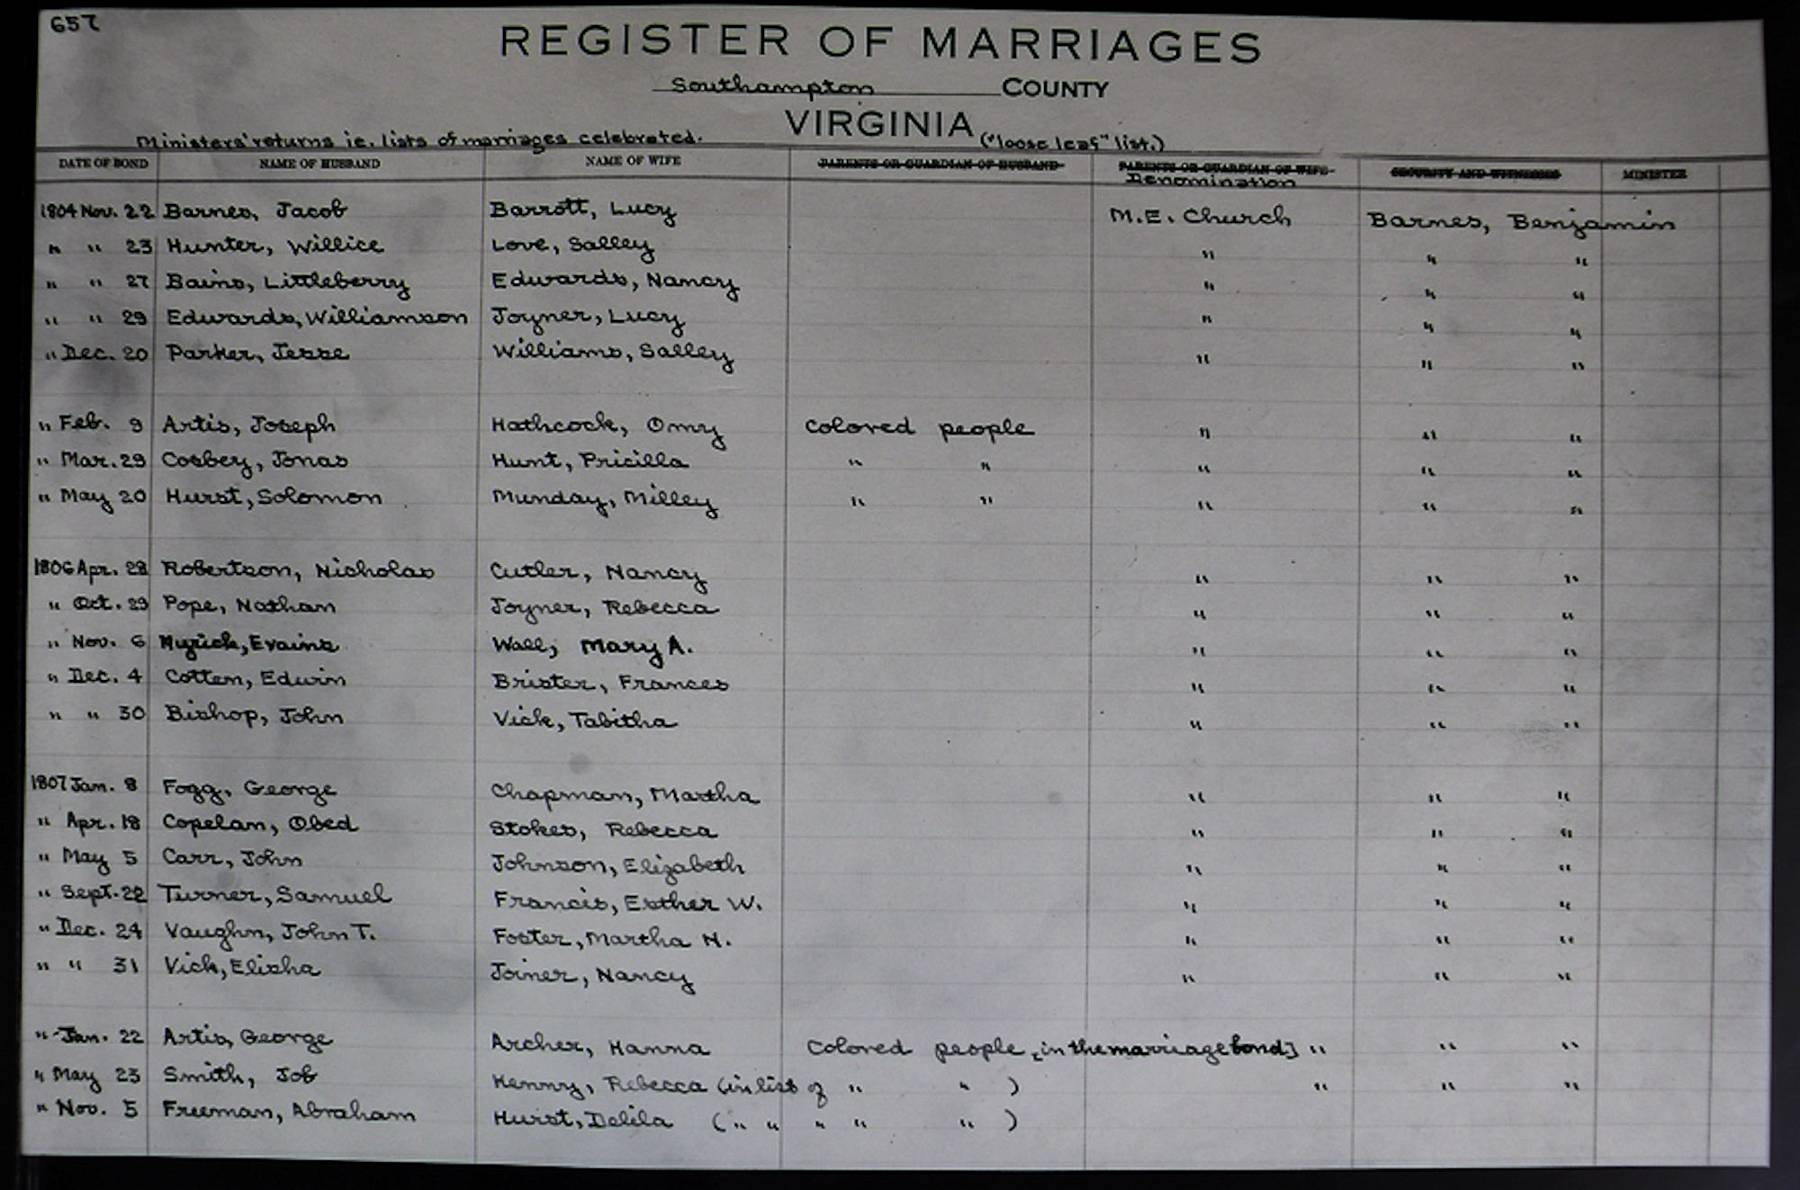 657
REGISTER OF MARRIAGES
Southampton COUNTY
VIRGINIA
Ministers' returns ie. lists of marriages celebrated. ("loose leaf" list.)
DATE OF BOND NAME OF HUSBAND NAME OF WIFE PARENTS OR GUARDIAN OF HUSBAND PARENTS OR GUARDIAN OF WIFE SECURITY AND WITNESSES MINISTER
Denomination
1804 Nov. 22 Barnes, Jacob Barrott, Lucy M.E. Church Barnes, Benjamin
" " 23 Hunter, Willice Love, Salley " " "
" " 27 Bains, Littleberry Edwards, Nancy " " "
" " 29 Edwards, Williamson Joyner, Lucy " " "
" Dec. 20 Parker, Jesse Williams, Salley " " "
" Feb. 9 Artis, Joseph Hathcock, Omy Colored people " " "
" Mar. 29 Cosbey, Jonas Hunt, Pricilla " " " " "
" May 20 Hurst, Solomon Munday, Milley " " " " "
1806 Apr. 28 Robertson, Nicholas Cutler, Nancy " " "
" Oct. 29 Pope, Nathan Joyner, Rebecca " " "
" Nov. 6 Myrick, Evains Wall, Mary A. " " "
" Dec. 4 Cotten, Edwin Brister, Frances " " "
" " 30 Bishop, John Vick, Tabitha " " "
1807 Jan. 8 Fogg, George Chapman, Martha " " "
" Apr. 18 Copelan, Obed Stokes, Rebecca " " "
" May 5 Carr, John Johnson, Elizabeth " " "
" Sept. 22 Turner, Samuel Francis, Esther W. " " "
" Dec. 24 Vaughn, John T. Foster, Martha N. " " "
" " 31 Vick, Elisha Joiner, Nancy " " "
" Jan. 22 Artis, George Archer, Hanna Colored people [in the marriage bond] " " "
" May 23 Smith, Job Kenny, Rebecca (in list of " " ) " " "
" Nov. 5 Freeman, Abraham Hurst, Delila ( " " " " " )